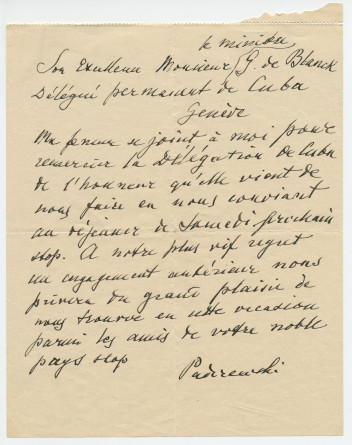 le ministre
Son Excellence Monsieur G. de Blanck
Délégué permanent de Cuba
Genève
Ma femme se joint à moi pour
remercier la Délégation de Cuba
de l'honneur qu'elle vient de
nous faire en nous conviant
au déjeuner de Samedi prochain
stop. A notre plus vif regret
un engagement antérieur nous
privera du grand plaisir de
nous trouver en cette occasion
parmi les amis de votre noble
pays stop
Paderewski